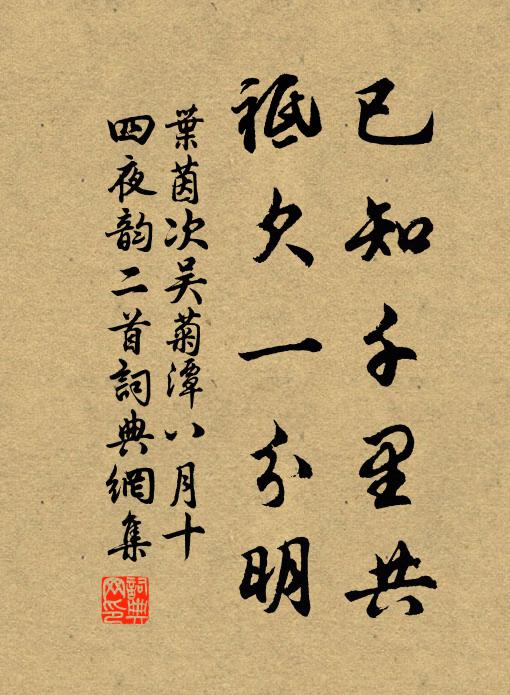 已知千里共
祗欠一分明
葉茵次吴菊潭八月十
四夜韵二首詞典網集
詞典网印